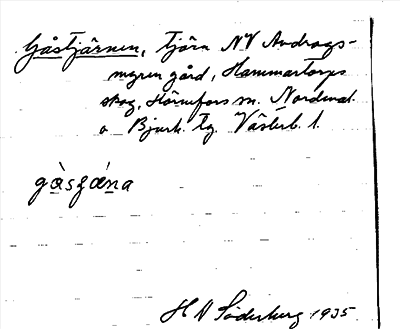 Gåstjärnen, tjärn NV Andrags-
myren gård, Hammartorps
skog, Hörnefors sn. Nordmal.
o Bjurh. tg. Västerb. l.
gàsʒǽna
H N Söderberg 1935